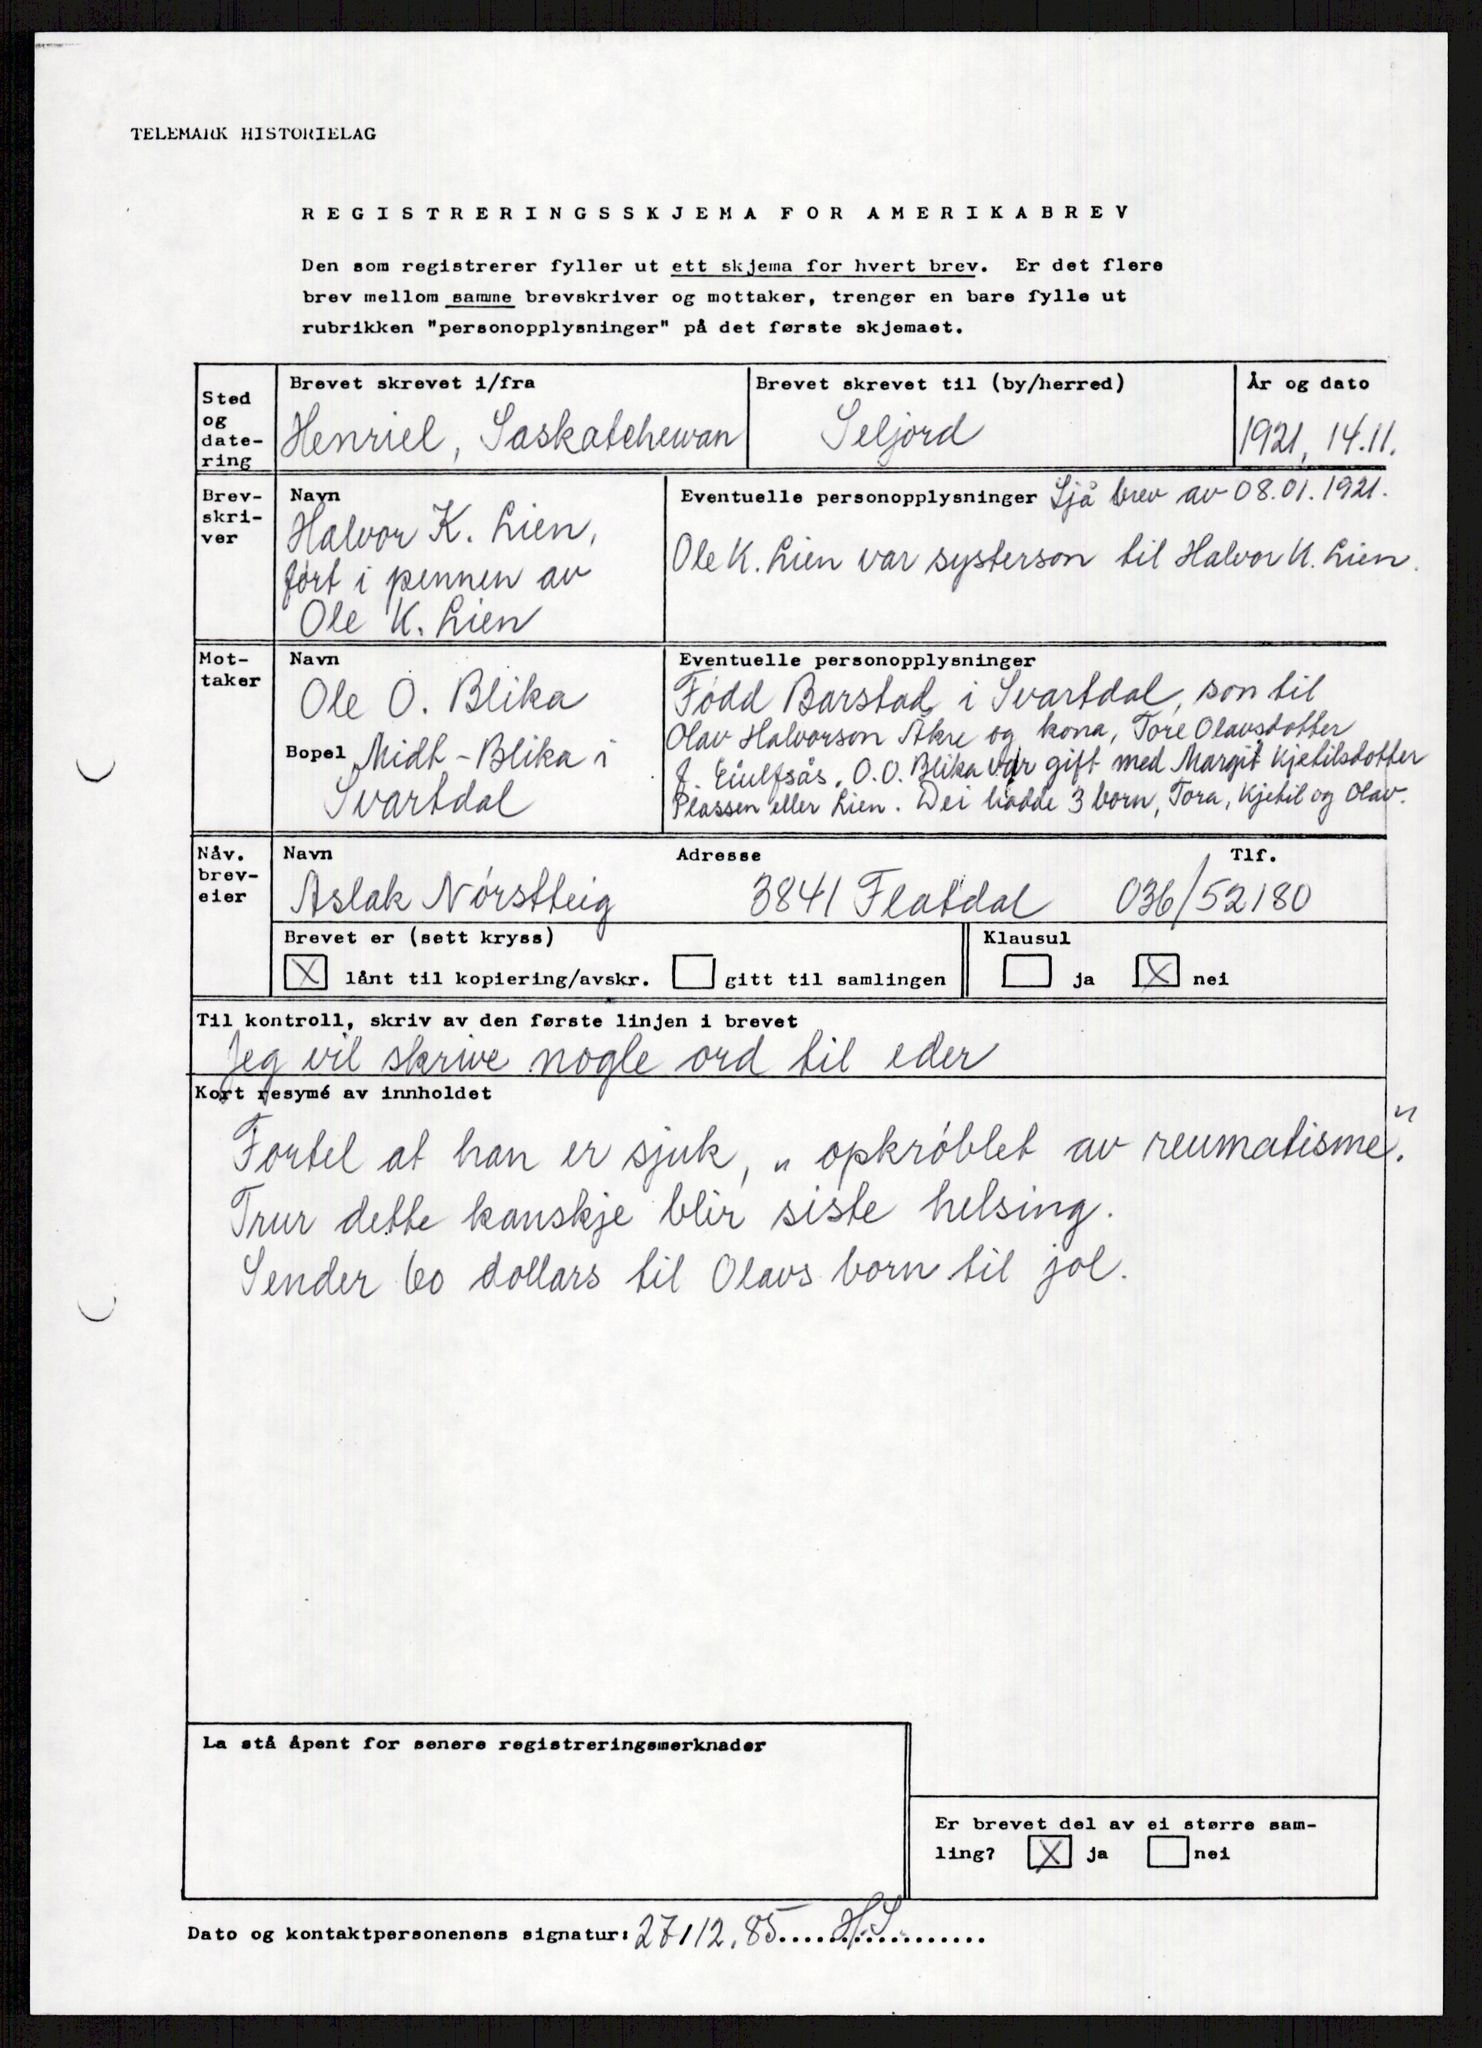 TELEMARK HISTORIELAG
REGISTRERINGSSKJEMA FOR AMERIKABREV
Den som registrerer fyller ut ett skjema for hvert brev. Er det flere
brev mellom samme brevskriver og mottaker, trenger en bare fylle ut
rubrikken "personopplysninger" på det første skjemaet.
Sted
og
date-
ring
Brevet skrevet i/fra
Henriel, Saskatchewan
Brevet skrevet til (by/herred)
Seljord
År og dato
1921, 14.11.
Brev-
skri-
ver
Navn
Halvor K. Lien,
ført i pennen av
Ole K. Lien
Eventuelle personopplysninger Sjå brev av 08.01.1921.
Ole K. Lien var systerson til Halvor K. Lien.
Mot-
taker
Navn
Ole O. Blika
Bopel Midt-Blika i
Svartdal
Eventuelle personopplysninger
Fødd Barstad i Svartdal, son til
Olav Halvorson Åkre og kona, Tore Olavsdotter
f. Eiulfsås. O.O. Blika var gift med Margit Kjetilsdotter
Plassen eller Lien. Dei hadde 3 born, Tora, Kjetil og Olav.
Nåv.
brev-
eier
Navn
Aslak Nørstteig
Adresse
3841 Flatdal
Tlf.
036/52180
Brevet er (sett kryss)
X lånt til kopiering/avskr. gitt til samlingen
Klausul
ja X nei
Til kontroll, skriv av den første linjen i brevet
Jeg vil skrive nogle ord til eder
Kort resymé av innholdet
Fortel at han er sjuk, „opkrøblet av reumatisme."
Trur dette kanskje blir siste helsing.
Sender 60 dollars til Olavs born til jol.
La stå åpent for senere registreringsmerknader
Er brevet del av ei større sam-
ling? X ja nei
Dato og kontaktpersonenens signatur: 27/12.85.....H.S..................